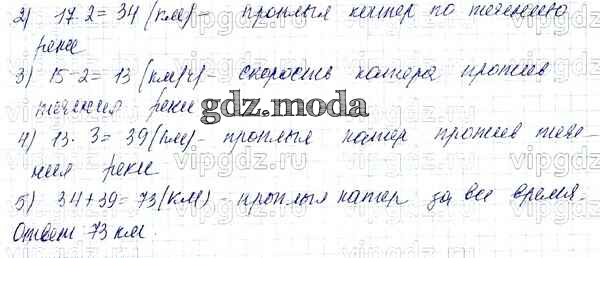 2) 17·2=34 (км)- проплыл катер по течению
реки
3) 15-2=13 (км/ч)- скорость катера против
течения реки
gdz.moda
4) 13·3=39(км)- проплыл катер против тече-
ния реки
5) 34+39=73(км) - проплыл катер за все время.
Ответ 73 км.
vipgdz.ru